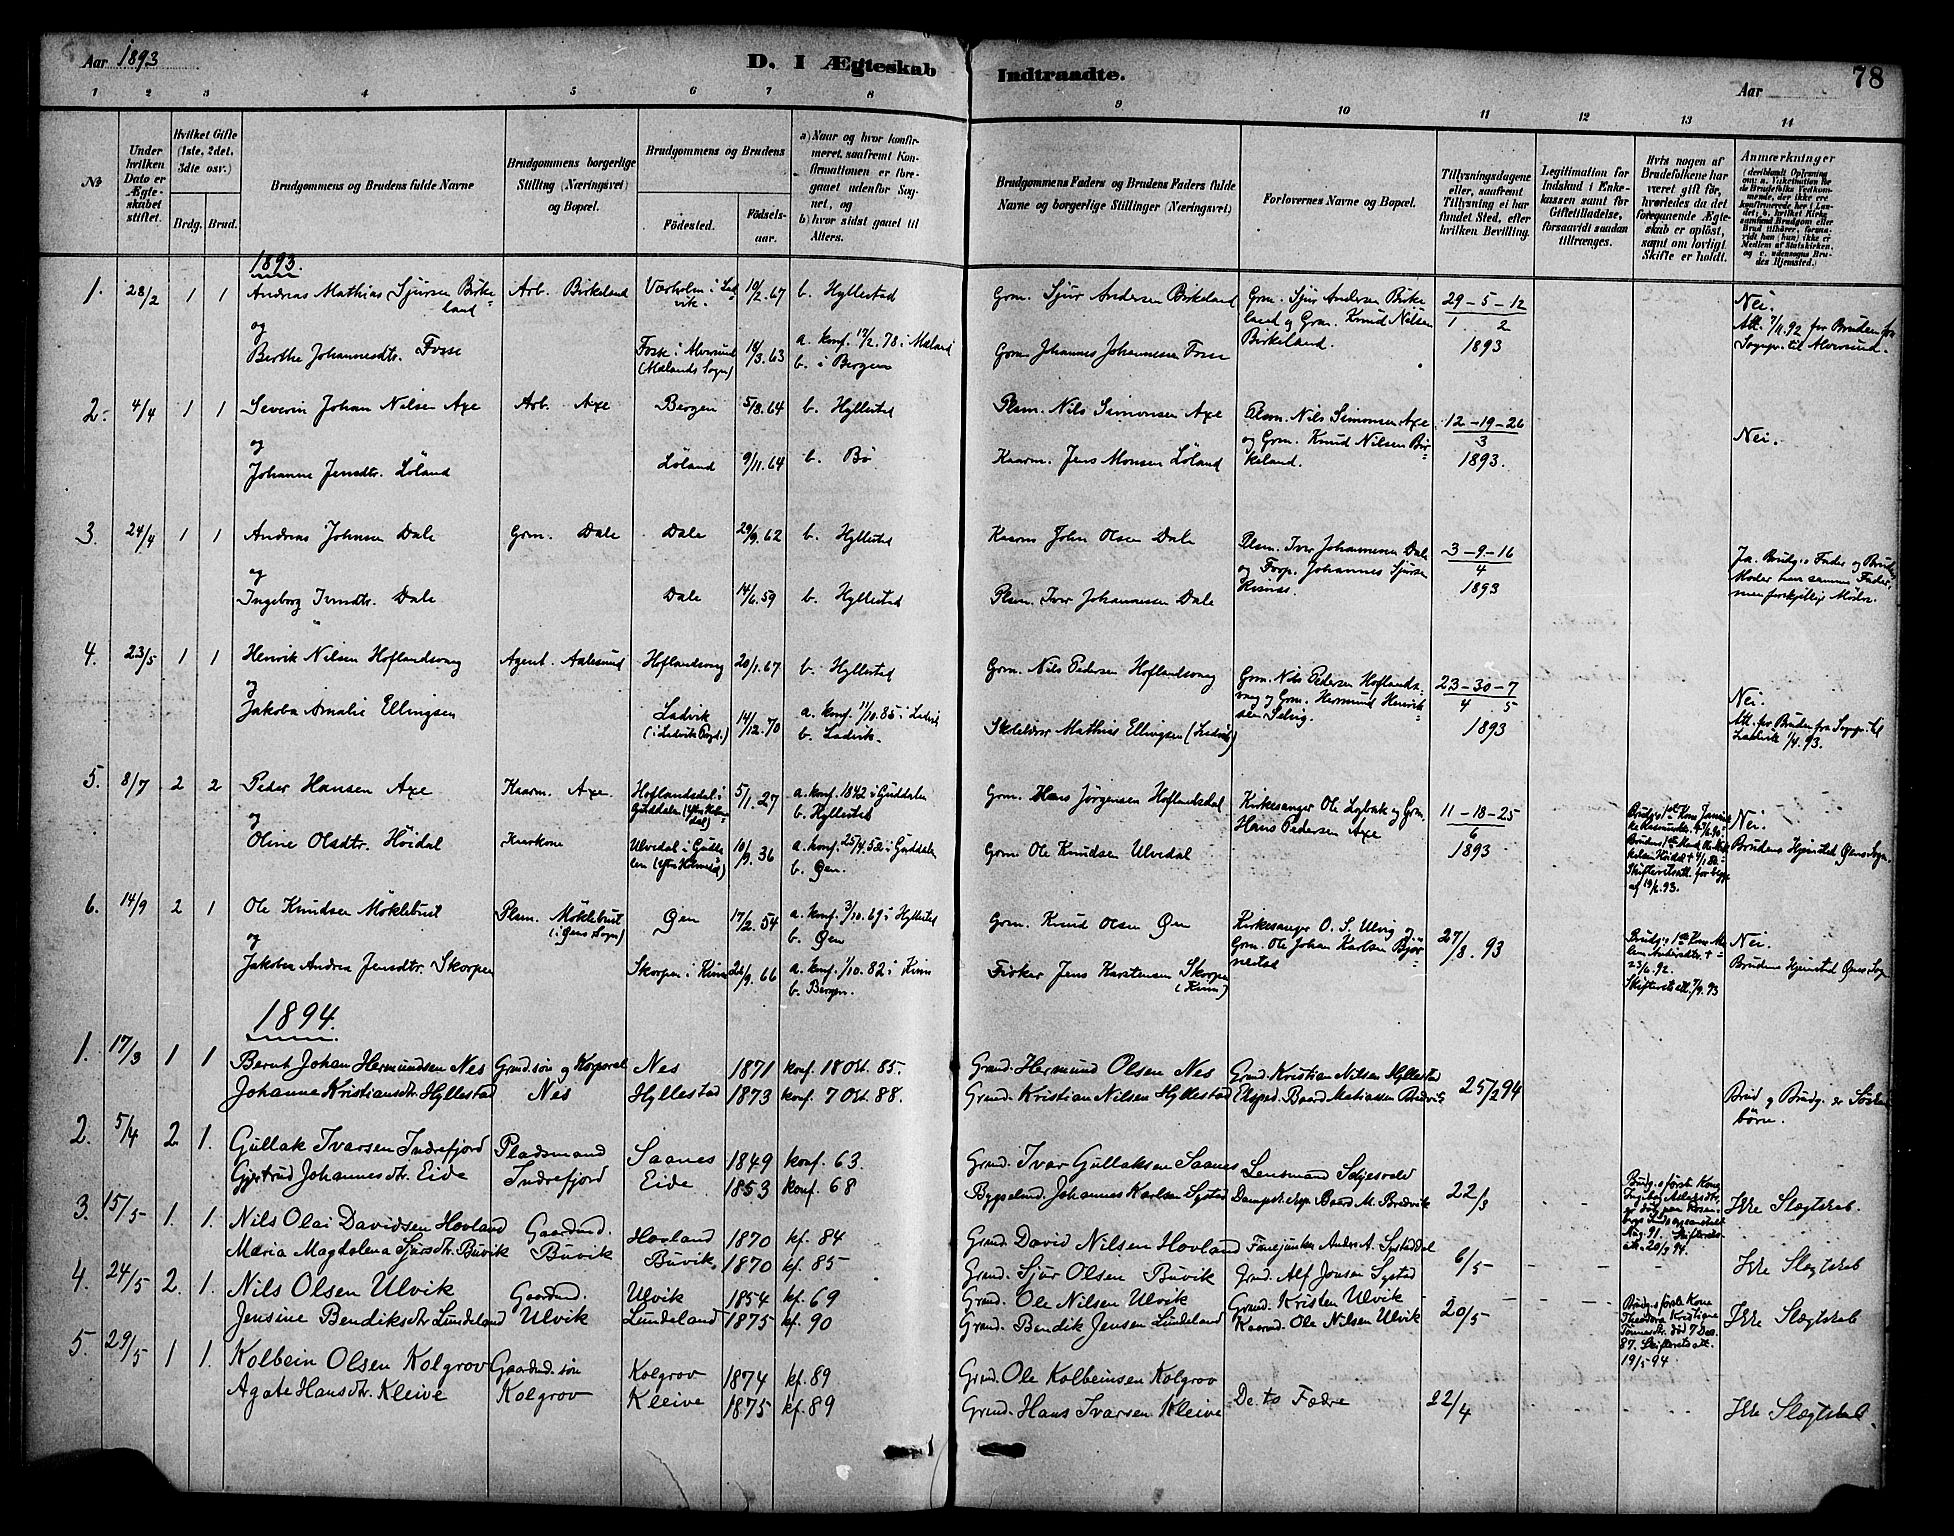 Aar 1893
D. I Ægteskab Indtraadte.
Aar
78
1 2 3 4 5 6 7 8 9 10 11 12 13 14
No
Under hvilken Dato er Ægteskabet stiftet.
Hvilket Gifte (1ste, 2det, 3die osv.)
Brdg. Brud.
Brudgommens og Brudens fulde Navne
Brudgommens borgerlige Stilling (Næringsvei) og Bopæl.
Brudgommens og Brudens
Födested. Födselsaar.
a) Naar og hvor konfirmeret, saafremt Konfirmationen er foregaaet udenfor Sognet, og b) hvor sidst gaaet til Alters.
Brudgommens Faders og Brudens Faders fulde Navne og borgerlige Stillinger (Næringsvei)
Forlovernes Navne og Bopæl.
Tillysningsdagene eller, saafremt Tillysning ei har fundet Sted, efter hvilken Bevilling.
Legitimation for Indskud i Enkekassen samt for Giftetilladelse, forsaavidt saadan tiltrænges.
Hvis nogen af Brudefolkene har været gift för, hvorledes da det foregaaende Ægteskab er oplöst, samt om lovligt Skifte er holdt.
Anmærkninger
1893.
1. 28/2 1 1 Andreas Mathias Sjursen Birkeland Arb. Birkeland Varholm i Ladvik. 10/2.67 b. Hyllestad Grm. Sjur Andersen Birkeland Grm. Sjur Andersen Birkeland og Grm. Knud Nilsen Birkeland. 29-5-12 1 2 1893 Nei.
og
Berthe Johannesdtr. Fosse Fosse i Alversund (Mælands Sogn) 14/3.63 a. konf. 17/2.78 i Mæland b. i Bergen Grm Johannes Johannessen Fosse Att. 7/11.92 for Bruden fra Sognepr. til Alversund.
2. 4/4 1 1 Severin Johan Nilsen Axe Arb. Axe Bergen 5/8.64 b. Hyllestad Plsm. Nils Simonsen Axe Plsm. Nils Simonsen Axe og Grm. Knud Nilsen Birkeland. 12-19-26 3 1893. Nei.
og
Johanne Jensdtr. Löland Löland 9/11.64 b. Bö Kaarm. Jens Monsen Löland
3. 24/4 1 1 Andreas Johnsen Dale Grm. Dale Dale 29/9.62 b. Hyllestad Kaarm John Olsen Dale Plsm. Iver Johannessen Dale og Forp. Johannes Sjursen Risnes. 3-9-16 4 1893 Ja. Brudg.s Fader og Brudens Moder har samme Fader men forskjellige Mödre.
og
Ingeborg Iversdtr. Dale Dale 14/6.59 b. Hyllestad Plsm. Iver Johannessen Dale
4. 23/5 1 1 Henrik Nilsen Hoflandsvaag Agent. Aalesund Hoflandsvaag 20/1.67 b. Hyllestad Grm. Nils Pedersen Hoflandsvaag Grm. Nils Pedersen Hoflandsvaag og Grm. Hermund Henriksen Selvig. 23-30-7 4 5 1893 Nei.
og
Jakoba Amalie Ellingsen Ladvik (i Ladvik Prgd.) 14/12.70 a. konf. 11/10.85 i Ladvik b. Ladvik. Skolelærer Mathias Ellingsen (Ladvik) Att. for Bruden fra Sognepr. til Ladvik 1/4.93.
5. 8/7 2 2 Peder Hansen Axe Kaarm. Axe Hoflandsdal i Guddalen 5/1.27 a. konf. 1842 i Guddalen b. Hyllestad Grm. Hans Jörgensen Hoflandsdal Kirkesanger Ole Losbak og Grm. Hans Pedersen Axe 11-18-25 6 1893 Nei.
og
Oline Olsdtr. Höidal Kaarkone Ulvedal i Guddalen 10/9.36 a. konf. 25/4.52 i Guddalen b. Öen. Grm Ole Knudsen Ulvedal Skifteretsatt. for begge af 19/6.93. Brudens Hjemsted Öens Sogn.
6. 14/9 2 1 Ole Knudsen Möklebust Plsm. Möklebust (i Öens Sogn) Öen 17/2.54 a. konf. 3/10.69 i Hyllestad b. Öen Grm. Knud Olsen Öen Kirkesanger O. S. Ulvig og Grm. Ole Johan Karlsen Bjørnestad 27/8.93 Nei.
og
Jakobea Andrea Jensdtr. Skorpen Skorpen i Kinn 26/9.66 a. konf. 1/10.82 i Kinn b. Bergen. Fisker Jens Karstensen Skorpen (Kinn) 23/6.92. Skifteretsatt. 7/9.93 Brudens Hjemsted Öens Sogn
1894.
1. 17/3 1 1 Bernt Johan Hermundsen Nes Grmd.sön og Korporal Nes 1871 konf. 18 Okt. 85. Grmd. Hermund Olsen Nes Grmd. Kristian Nilsen Hyllestad 25/2 94
Johanne Kristiansdtr. Hyllestad Nes Hyllestad 1873 konf. 7 Okt. 88. Grmd. Kristian Nilsen Hyllestad Eksped. Baard Matiassen Bredvik Brud og Brudg. er Söskendebörn.
2. 5/4 2. 1. Gullak Ivarsen Indrefjord Pladsmand Saanes 1849 konf. 63. Grmd. Ivar Gullaksen Saanes Lensmand Schjesvold
Gjertrud Johannesdtr. Eide Indrefjord Eide 1853 konf. 68 Bygselmd. Johannes Karlsen Systad Dampsk.eksp. Baard M. Bredvik 22/3 Ikke Slægtskab.
3. 15/5 1. 1. Nils Olai Davidsen Hovland Gaardmd. Hovland 1870 kf. 84 Grmd. David Nilsen Hovland Fanejunker Andr. A. Systaddal 6/5
Maria Magdalena Sjursdtr. Buvik Buvik Buvik 1870 kf. 85 Grmd. Sjur Olsen Buvik Grmd. Alf Jonsen Systad Ikke Slægtskab
4. 24/5 2. 1. Nils Olsen Ulvik Gaardmd. Ulvik 1854 kf. 69 Grmd. Ole Nilsen Ulvik Grmd. Kristen Ulvik 20/5 Brudg.s förste Kone Theodora Kristiane Tönnesdtr. död 7 Dec. 87. Skifteretsatt. 19/5-94
Jensine Bendiksdtr. Lundeland Ulvik Lundeland 1875 kf. 90 Grmd. Bendik Jensen Lundeland Kaarmd. Ole Nilsen Ulvik Ikke Slægtskab
5. 29/5 1 1. Kolbein Olsen Kolgrov Gaardmd. sön Kolgrov 1874 kf. 89 Grmd. Ole Kolbeinsen Kolgrov
Agate Hansdtr. Kleive Kolgrov Kleive 1875 kf. 89 Grmd. Hans Ivarsen Kleive De to Fædre 22/4 Ikke Slægtskab.